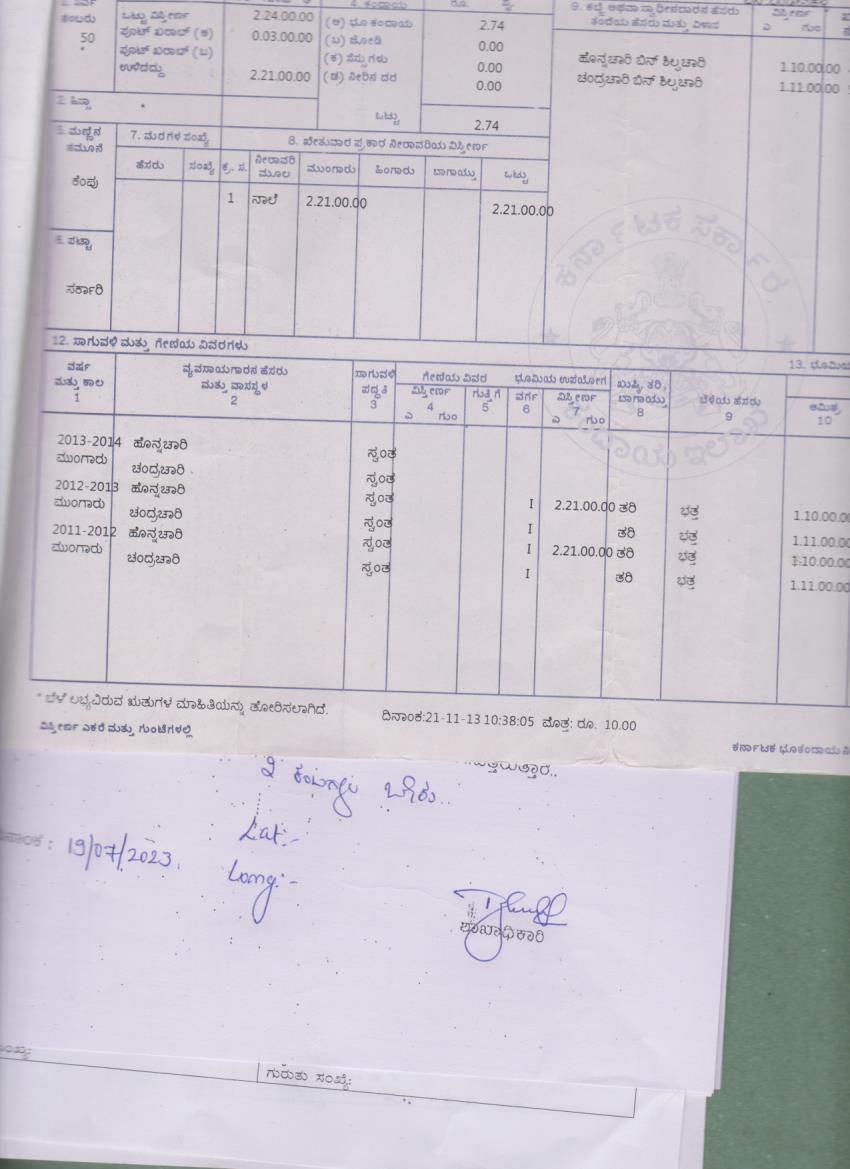 ನಂಬರು ಒಟ್ಟು ವಿಸ್ತೀರ್ಣ 2.24.00.00 (ಅ) ಭೂ ಕಂದಾಯ 2.74
50 ಫೂಟ್ ಖರಾಬ್ (ಅ) 0.03.00.00 (ಬ) ಜೋಡಿ 0.00
ಫೂಟ್ ಖರಾಬ್ (ಬ) (ಕ) ಸೆಸ್ಸುಗಳು 0.00
ಉಳಿದದ್ದು 2.21.00.00 (ಡ) ನೀರಿನ ದರ 0.00
2. ಹಿಸ್ಸಾ ಒಟ್ಟು 2.74
9. ಕಬ್ಜೆ ಅಥವಾ ಸ್ವಾಧೀನದಾರನ ಹೆಸರು ವಿಸ್ತೀರ್ಣ
ತಂದೆಯ ಹೆಸರು ಮತ್ತು ವಿಳಾಸ ಎ ಗುಂ
ಹೊನ್ನಚಾರಿ ಬಿನ್ ಶಿಲ್ಪಚಾರಿ 1.10.00.00
ಚಂದ್ರಚಾರಿ ಬಿನ್ ಶಿಲ್ಪಚಾರಿ 1.11.00.00
5. ಮಣ್ಣಿನ 7. ಮರಗಳ ಸಂಖ್ಯೆ 8. ಖೇತುವಾರ ಪ್ರಕಾರ ನೀರಾವರಿಯ ವಿಸ್ತೀರ್ಣ
ನಮೂನೆ ಹೆಸರು ಸಂಖ್ಯೆ ಕ್ರ. ಸ. ನೀರಾವರಿ ಮುಂಗಾರು ಹಿಂಗಾರು ಬಾಗಾಯ್ತು ಒಟ್ಟು
ಮೂಲ
ಕೆಂಪು 1 ನಾಲೆ 2.21.00.00 2.21.00.00
6. ಪಟ್ಟಾ
ಸರ್ಕಾರಿ
ಕರ್ನಾಟಕ ಸರ್ಕಾರ
ಕಂದಾಯ ಇಲಾಖೆ
12. ಸಾಗುವಳಿ ಮತ್ತು ಗೇಣಿಯ ವಿವರಗಳು
13. ಭೂಮಿಯ
ವರ್ಷ ವ್ಯವಸಾಯಗಾರನ ಹೆಸರು ಸಾಗುವಳಿ ಗೇಣಿಯ ವಿವರ ಭೂಮಿಯ ಉಪಯೋಗ ಖುಷ್ಕಿ, ತರಿ, ಬೆಳೆಯ ಹೆಸರು
ಮತ್ತು ಕಾಲ ಮತ್ತು ವಾಸಸ್ಥಳ ಪದ್ಧತಿ ವಿಸ್ತೀರ್ಣ ಗುತ್ತಿಗೆ ವರ್ಗ ವಿಸ್ತೀರ್ಣ ಬಾಗಾಯ್ತು ಅಮಿಶ್ರ
1 2 3 ಎ 4 ಗುಂ 5 6 ಎ 7 ಗುಂ 8 9 10
2013-2014 ಹೊನ್ನಚಾರಿ ಸ್ವಂತ
ಮುಂಗಾರು ಚಂದ್ರಚಾರಿ ಸ್ವಂತ
2012-2013 ಹೊನ್ನಚಾರಿ ಸ್ವಂತ I 2.21.00.00 ತರಿ ಭತ್ತ 1.10.00.00
ಮುಂಗಾರು ಚಂದ್ರಚಾರಿ ಸ್ವಂತ I ತರಿ ಭತ್ತ 1.11.00.00
2011-2012 ಹೊನ್ನಚಾರಿ ಸ್ವಂತ I 2.21.00.00 ತರಿ ಭತ್ತ 1.10.00.00
ಮುಂಗಾರು ಚಂದ್ರಚಾರಿ ಸ್ವಂತ I ತರಿ ಭತ್ತ 1.11.00.00
* ಬೆಳೆ ಲಭ್ಯವಿರುವ ಋತುಗಳ ಮಾಹಿತಿಯನ್ನು ತೋರಿಸಲಾಗಿದೆ. ದಿನಾಂಕ:21-11-13 10:38:05 ಮೊತ್ತ: ರೂ. 10.00
ವಿಸ್ತೀರ್ಣ ಎಕರೆ ಮತ್ತು ಗುಂಟೆಗಳಲ್ಲಿ ಕರ್ನಾಟಕ ಭೂಕಂದಾಯ
Lat:-
19/07/2023. Long:-
ಶಾಖಾಧಿಕಾರಿ
ಗುರುತು ಸಂಖ್ಯೆ: